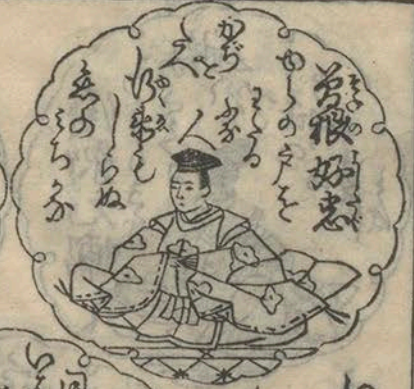 曽根好忠
ゆらの戸を
わたる
ふな
人
かぢを
たえ
行衛も
しらぬ
恋の
みちかな